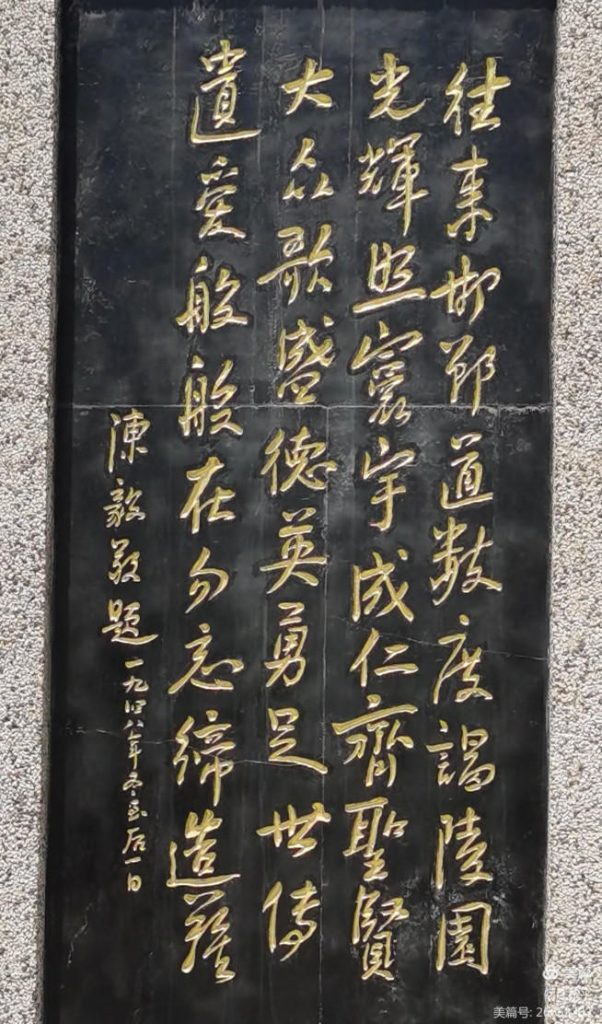 往来邯郸道数度謁陵園
光輝照寰宇成仁齊聖賢
大众歌盛德英勇足世傳
遺愛般般在勿忘締造難
陳毅敬題一九四八年冬至后一日
美篇号: